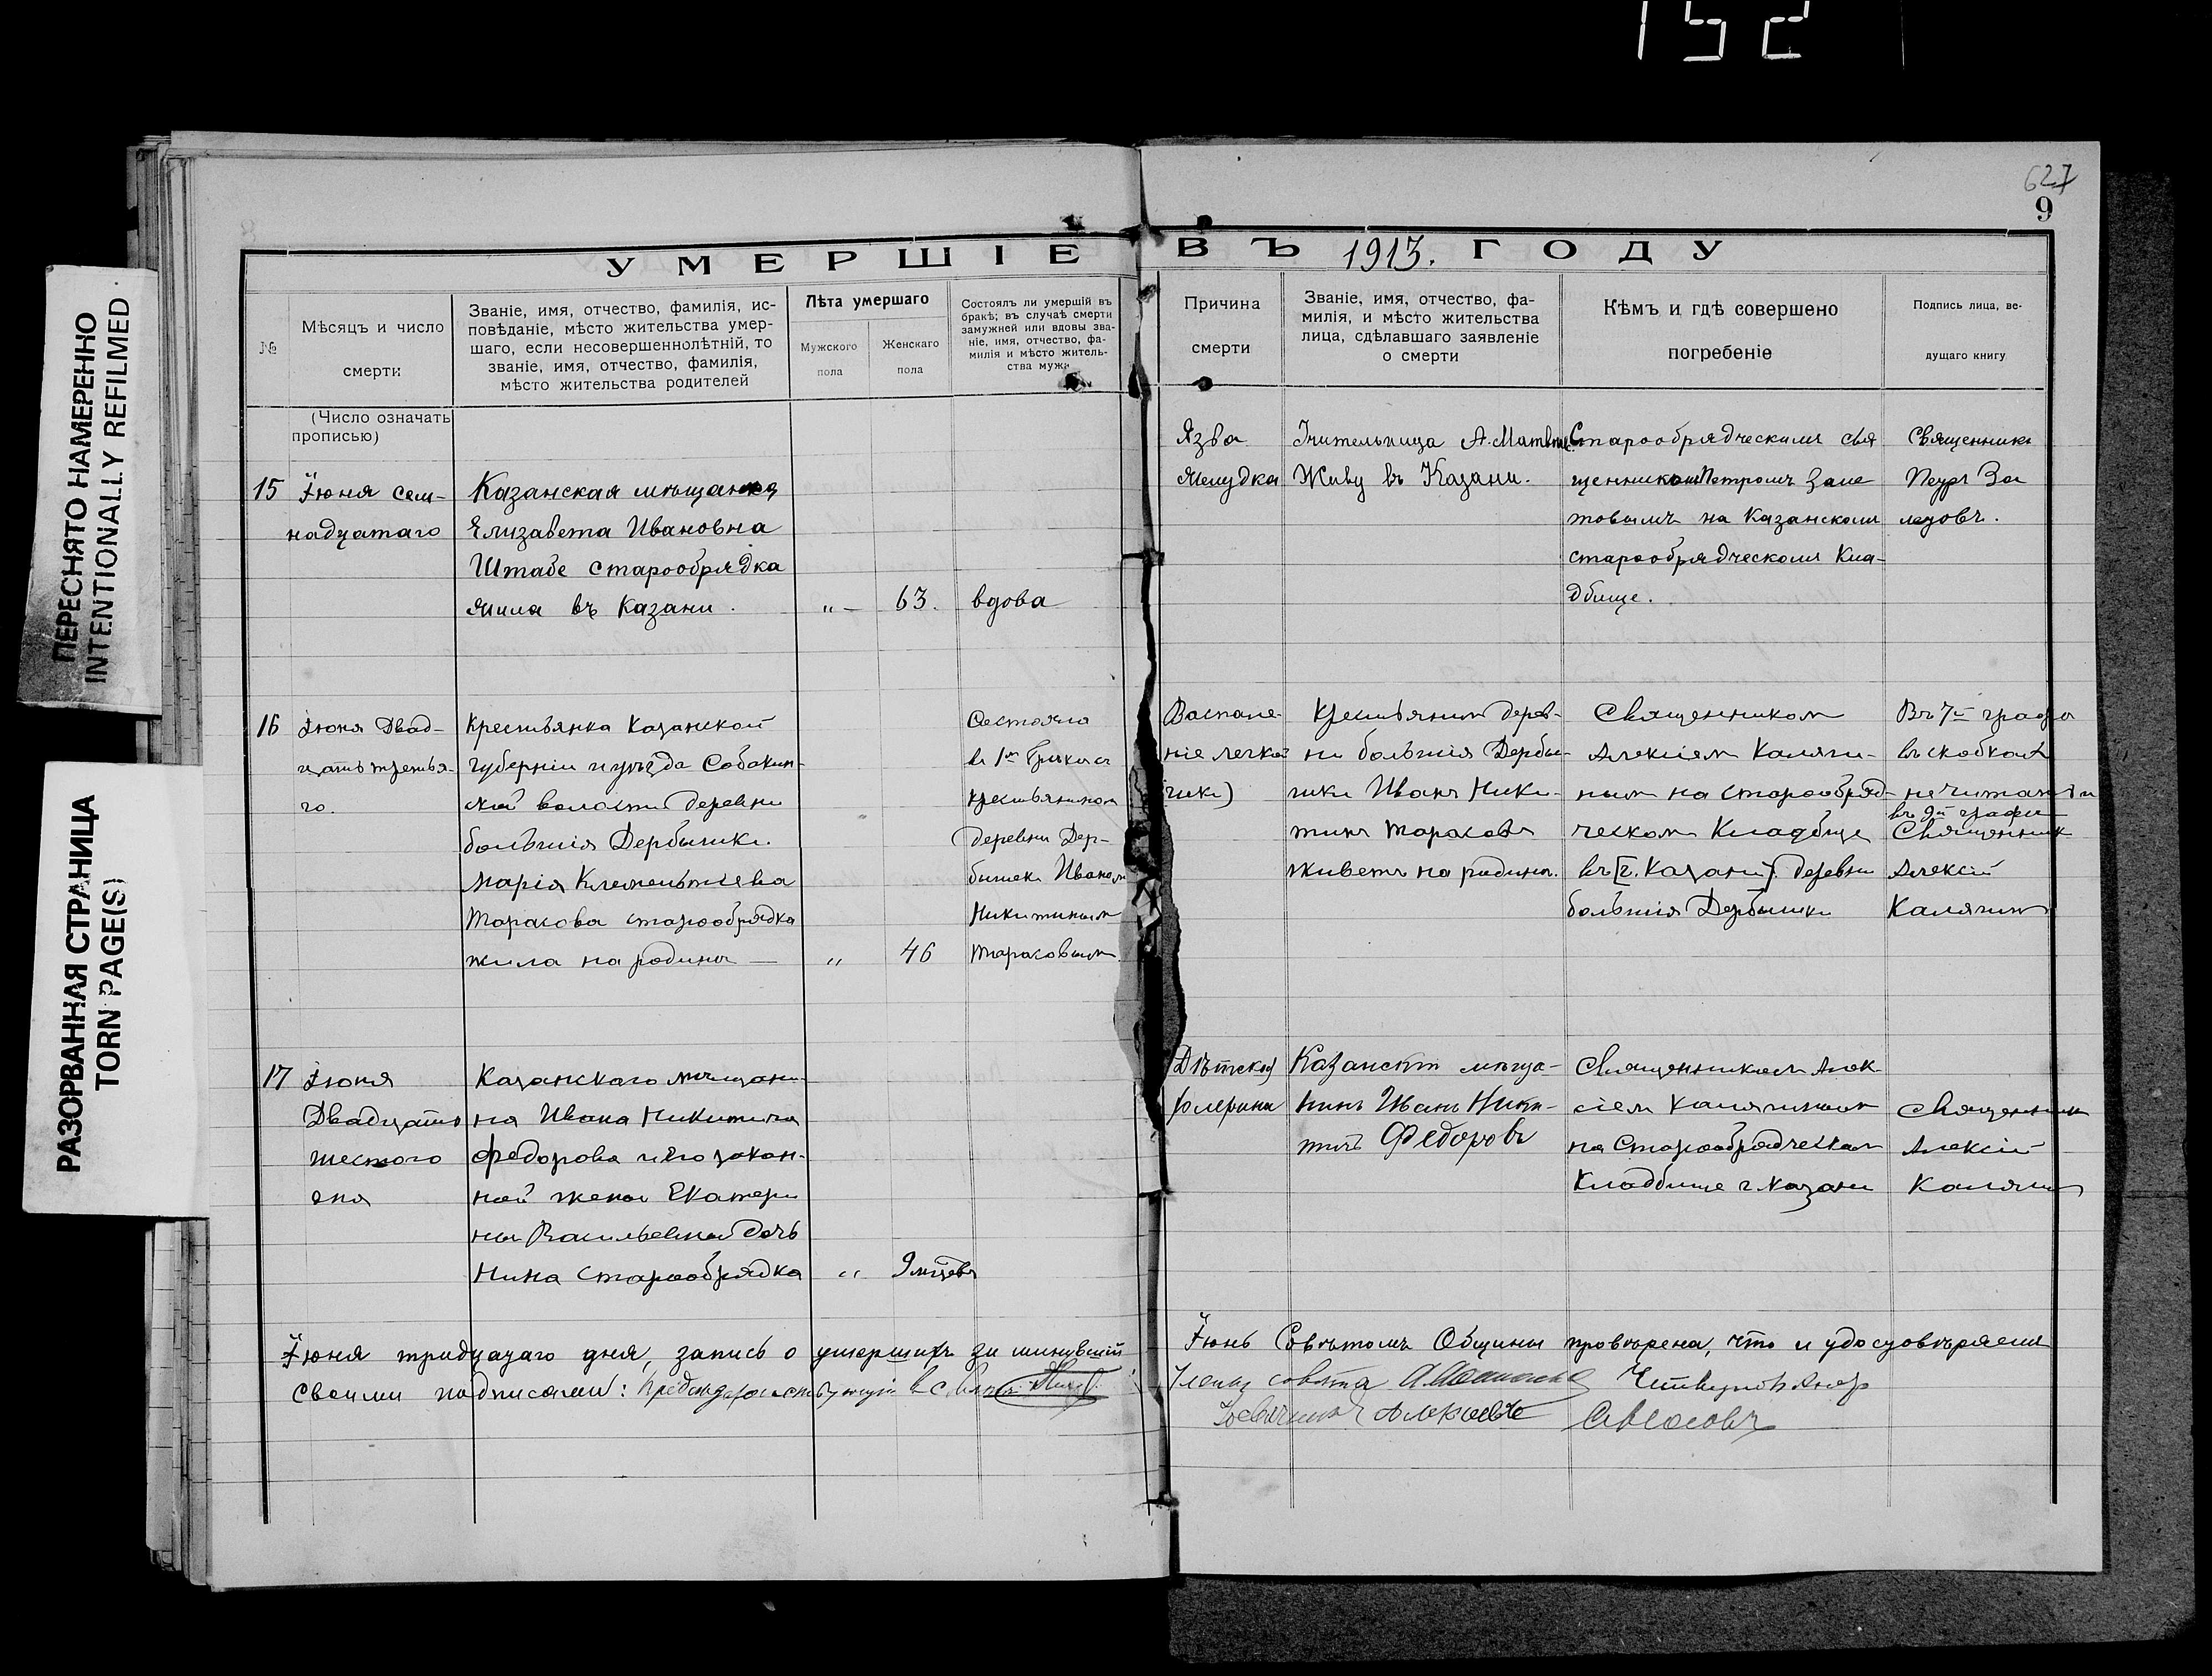 152
ПЕРЕСНЯТО НАМЕРЕННО
INTENTIONALLY REFILMED
РАЗОРВАННАЯ СТРАНИЦА
TORN PAGE(S)
627
9
УМЕРШІЕ ВЪ 1913. ГОДУ
№
Мѣсяцъ и число
смерти
Званіе, имя, отчество, фамилія, ис-
повѣданіе, мѣсто жительства умер-
шаго, если несовершеннолѣтній, то
званіе, имя, отчество, фамилія,
мѣсто жительства родителей
Лѣта умершаго
Мужского
пола
Женскаго
пола
Состоялъ ли умершій въ
бракѣ; въ случаѣ смерти
замужней или вдовы зва-
ніе, имя, отчество, фа-
милія и мѣсто житель-
ства мужа
Причина
смерти
Званіе, имя, отчество, фа-
милія, и мѣсто жительства
лица, сдѣлавшаго заявленіе
о смерти
Кѣмъ и гдѣ совершено
погребеніе
Подпись лица, ве-
дущаго книгу
(Число означать
прописью)
15
Іюня сем-
надцатаго
Казанская мѣщанка
Елизавета Ивановна
Штабе старообрядка
жила въ Казани.
„ –
63.
вдова
Язва
желудка
Учительница А.
Живу въ Казани.
Старообрядческимъ свя
щенникомъ Петромъ Зале
товымъ на Казанскомъ
старообрядческомъ Кла-
дбище.
Священникъ
Петръ За
летовъ.
16
Іюня Двад-
цать третья-
го.
Крестьянка Казанской
губерніи и уѣзда Собакин-
ской волости деревни
большія Дербышки.
Марія Клементьева
Тарасова старообрядка
жила на родинѣ —
„
46
Состояла
въ 1мъ бракѣ съ
крестьяниномъ
деревни Дер-
бышекъ Иваномъ
Никитинымъ
Тарасовымъ.
Воспале-
ніе легкой
Крестьянинъ дерев-
ни большія Дербы-
шки Иванъ Ники-
тинъ Тарасовъ
живетъ на родинѣ.
Священникомъ
Алексіемъ Каляги-
нымъ на старообряд-
ческомъ Кладбище
въ [г. Казани]. деревни
большія Дербышки
Въ 7й графѣ
въ скобкахъ
не читать и
въ 9й графе
Священникъ
Алексій
Калягинъ
17
Іюня
Двадцать
шестого
дня
Казанскаго мѣщани-
на Ивана Никитича
Федорова и его закон-
ной жены Екатери
ны Васильевной дочь
Нина старообрядка
„
9 мѣсецевъ
Дѣтская
Казанскій мѣща-
нинъ Иванъ Ники-
тичъ Федоровъ
Священникомъ Алек
сіемъ Калягинымъ
на Старообрядческомъ
Кладбище г. Казани
Священникъ
Алексій
Калягинъ
Іюня тридцатаго дня, запись о умершихъ за минувшій Іюнь Совѣтомъ Общины провѣрена, что и удостовѣряемъ
своими подписями: Предсѣдательствующій Члены совѣта